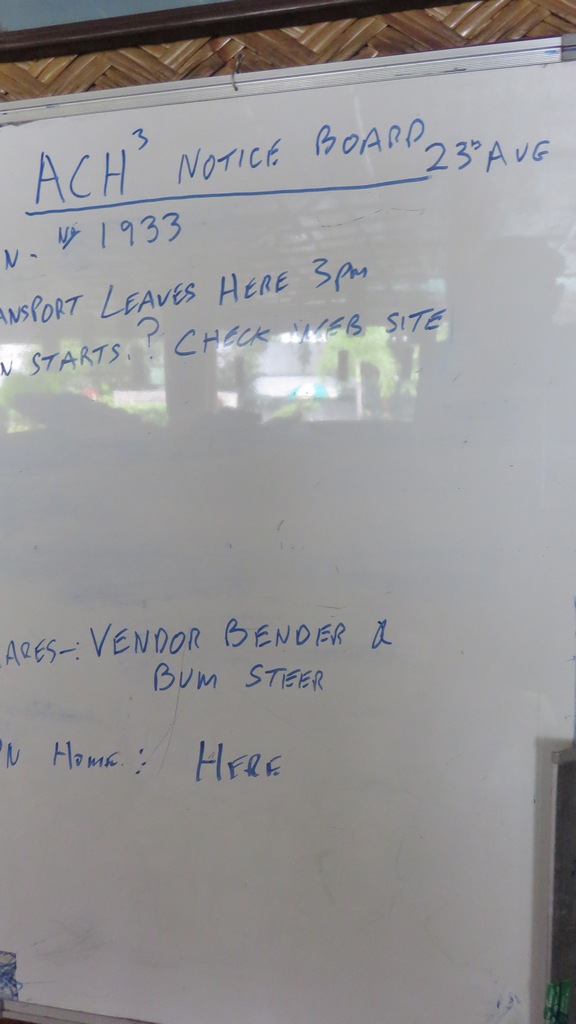 ACH³ NOTICE BOARD 23ᴰ AUG
N. Nº 1933
ANSPORT LEAVES HERE 3pm
N STARTS.? CHECK WEB SITE
ARES-: VENDOR BENDER &
BUM STEER
N HOME: HERE